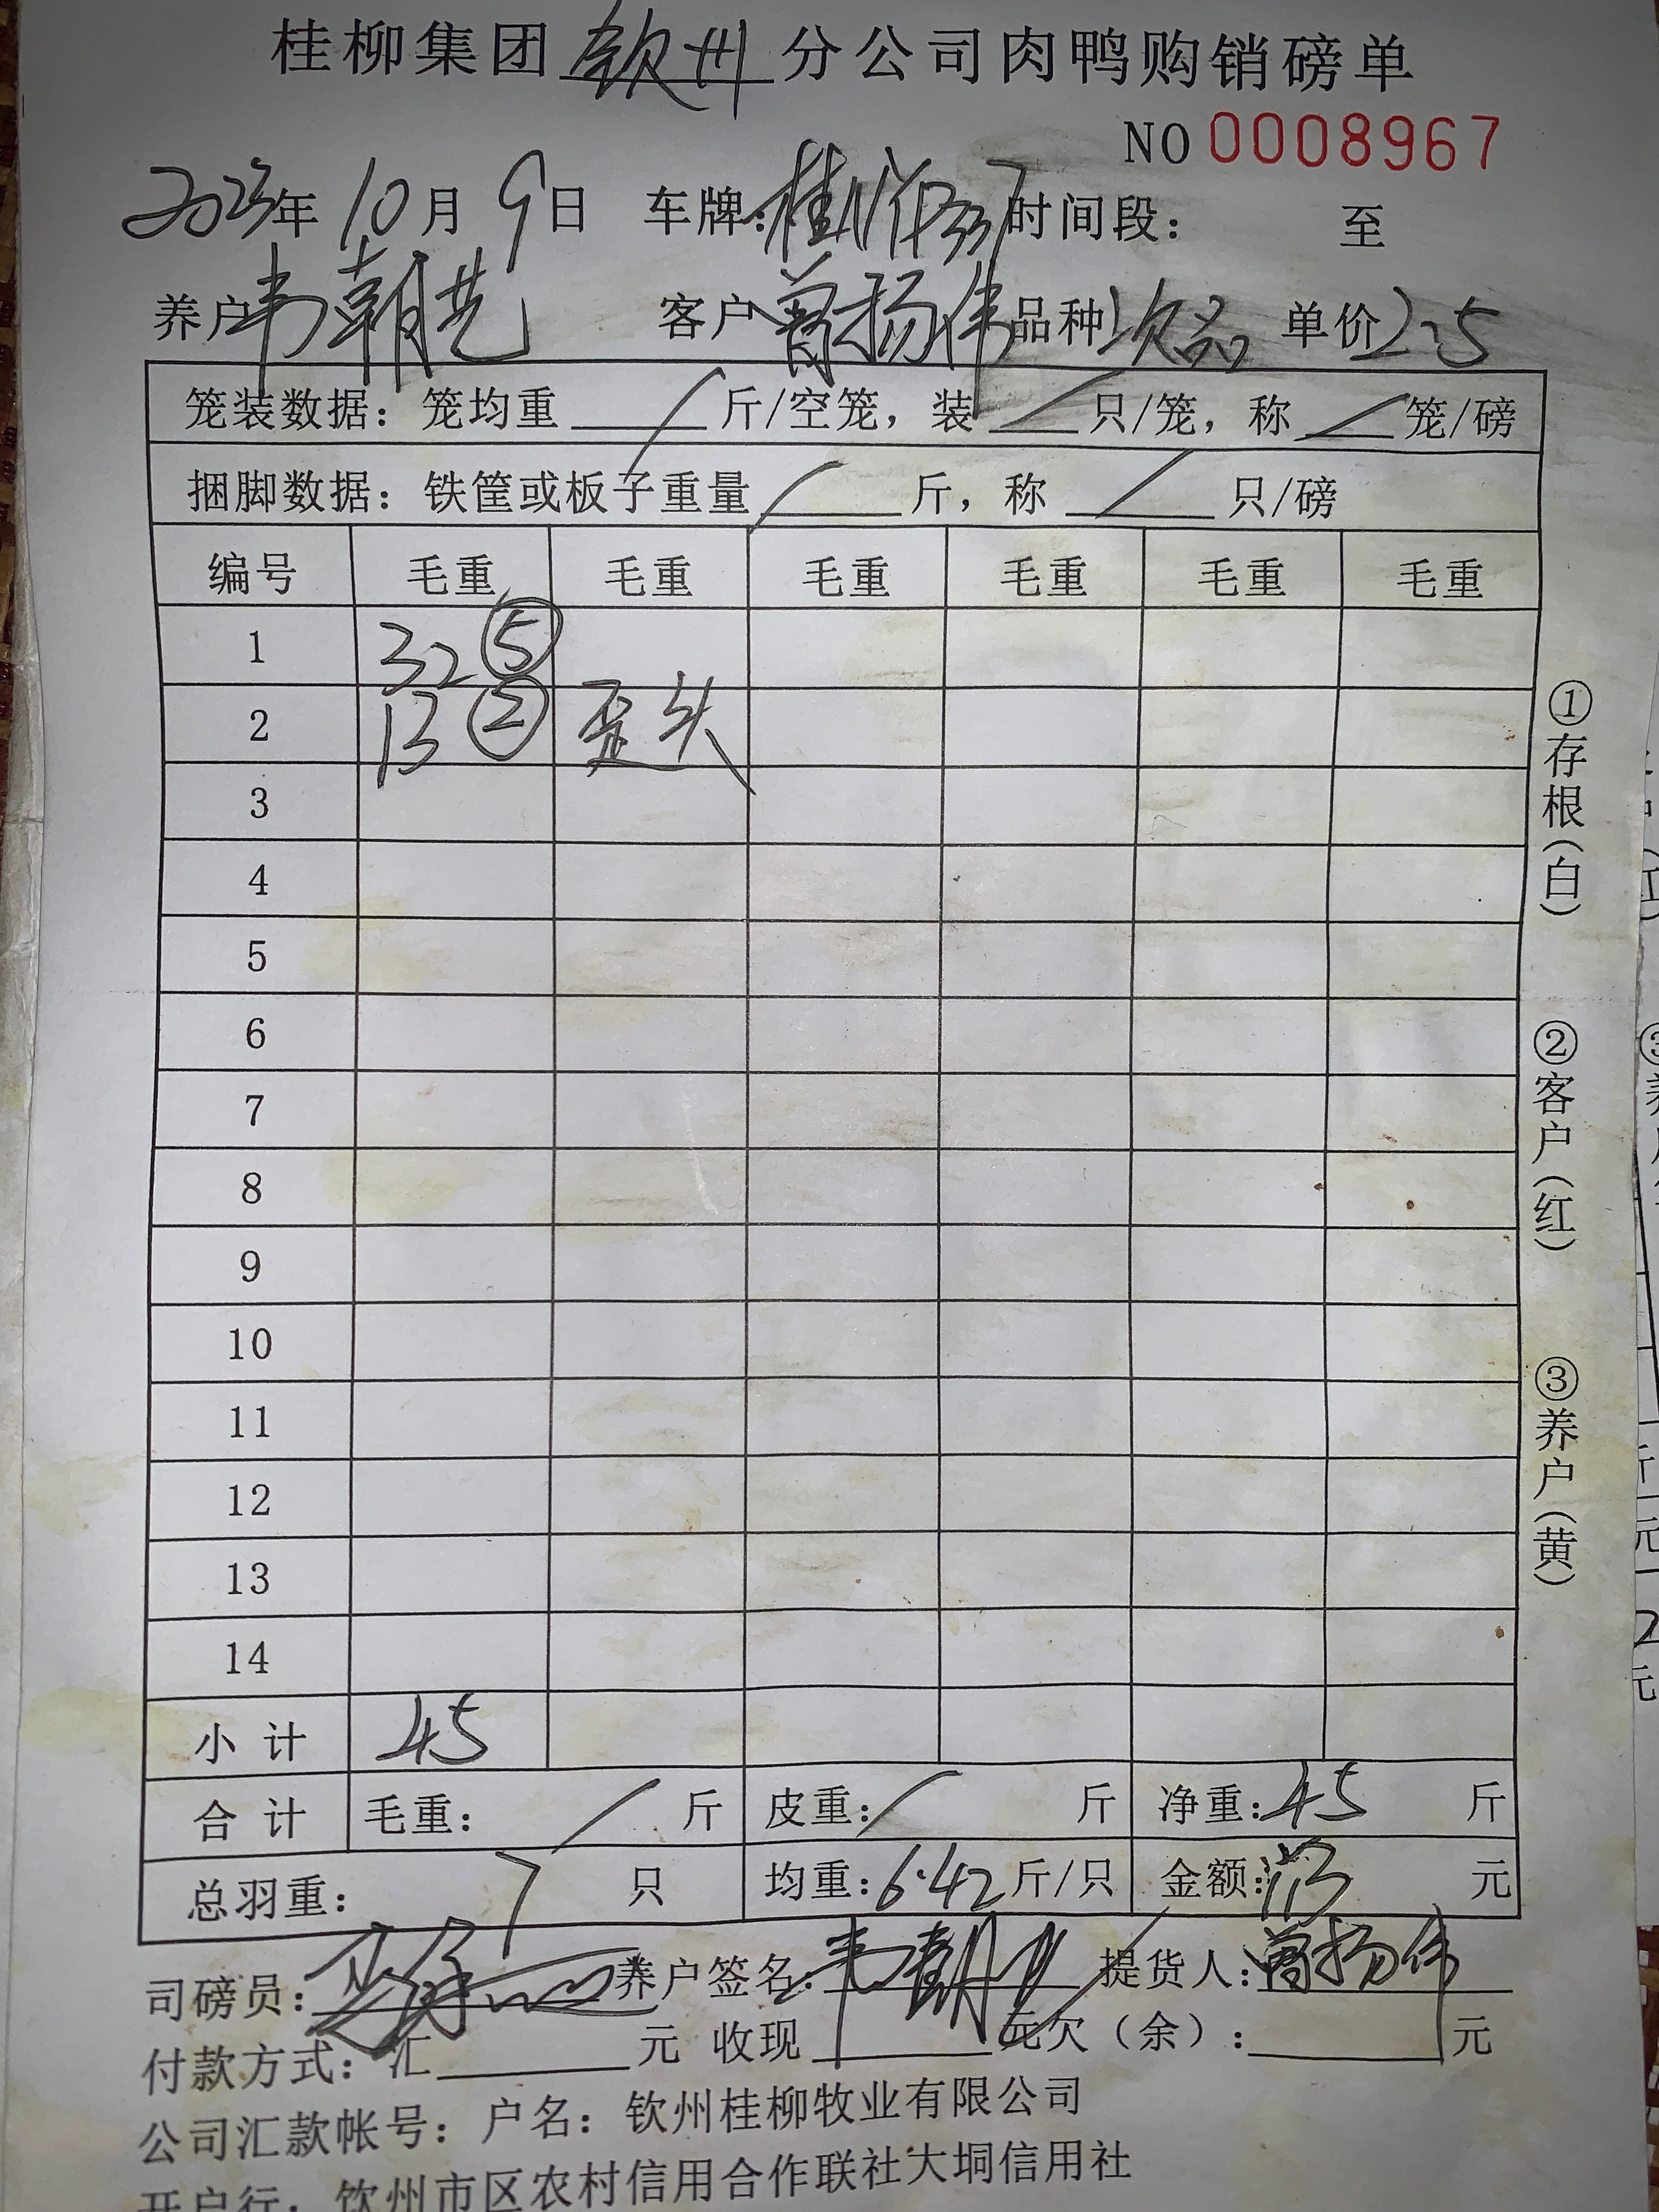 桂柳集团 钦州 分公司肉鸭购销磅单
NO 0008967
2023年 10月 9日 车牌: 时间段: 至
养户 韦朝艺 客户 曾扬伟 品种 次品 单价 2.5
笼装数据: 笼均重 / 斤/空笼, 装 / 只/笼, 称 / 笼/磅
捆脚数据: 铁筐或板子重量 / 斤, 称 / 只/磅
编号 毛重 毛重 毛重 毛重 毛重 毛重
1 32 ⑤
2 13 ② 歪头
3
4
5
6
7
8
9
10
11
12
13
14
小计 45
合计 毛重: / 斤 皮重: / 斤 净重: 45 斤
总羽重: 7 只 均重: 6.42 斤/只 金额: 113 元
司磅员: 养户签名: 韦朝艺 提货人: 曾扬伟
付款方式: 汇 元 收现 元欠(余): 元
公司汇款帐号: 户名: 钦州桂柳牧业有限公司
开户行: 钦州市区农村信用合作联社大垌信用社
①存根(白)
②客户(红)
③养户(黄)